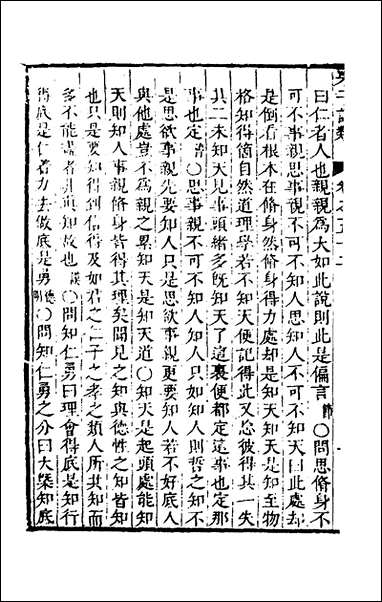 曰仁者人也親親爲大如此說則此是偏言○問思修身不
可不事親思事親不可不知人思知人不可不知天曰此處却
是倒看根本在修身然修身得力處却是知天知天是知至物
格知得箇自然道理學若不知天便記得此又忘彼得其一失
其二未知天見事頭緒多旣知天了這裏便都定這事也定那
事也定○思事親不可不知人知人只如知人則哲之知不
是思欲事親先要知人只是思欲事親更要知人若不好底人
與他處豈不爲親之累知天是知天道○知天是起頭處能知
天則知人事親修身皆得其理矣聞見之知與德性之知皆知
也只是要知得到信得及如君之仁子之孝之類人所共知而
多不能盡者非眞知故也○問知仁勇曰理會得底是知行
得底是仁着力去做底是勇○問知仁勇之分曰大槩知底